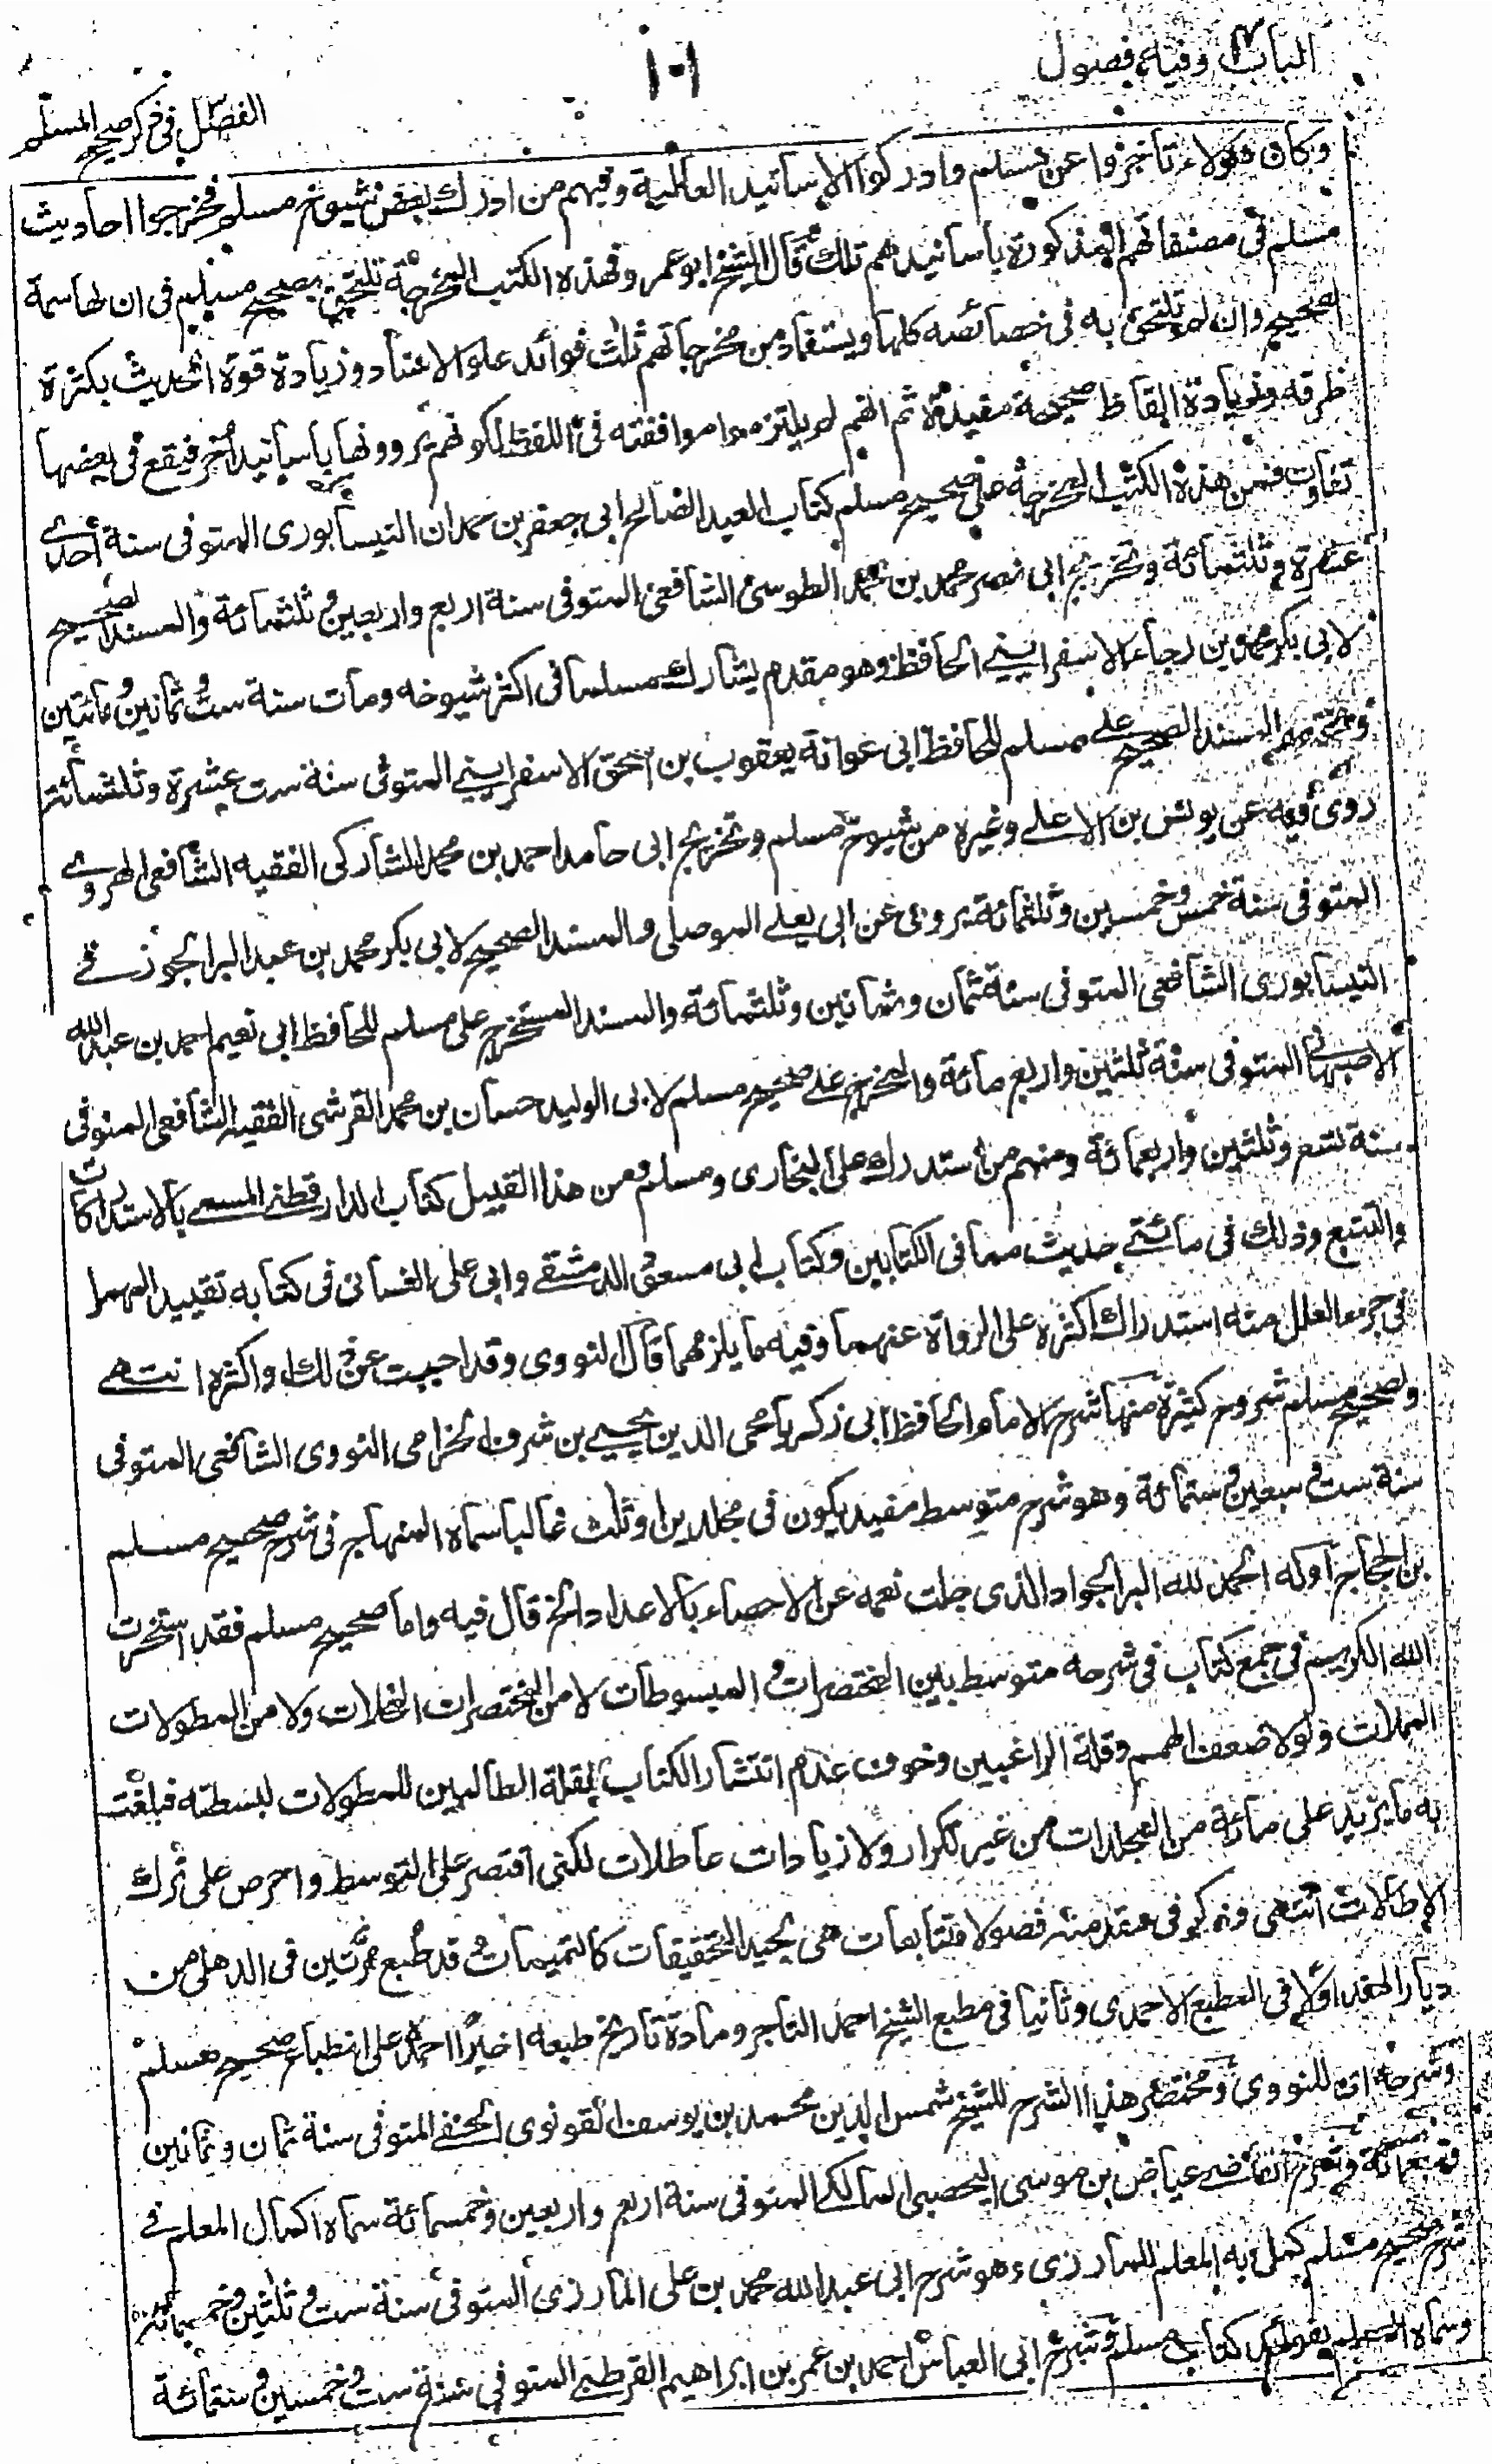 الباب وفيه فصول
١٠١
الفصل في ذكر صحيح المسلم
وكان هؤلاء تأخروا عن مسلم وادركوا الاسانيد العالية وفيهم من ادرك بعض شيوخ مسلم فخرجوا احاديث
مسلم في مصنفاتهم المذكورة باسانيدهم تلك قال الشيخ ابو عمر وفهذه الكتب المخرجة تلتحق بصحيح مسلم في ان لها سمة
الصحيح وان لم تلتحق به في خصائصه كلها ويستفاد من مخرجاتهم ثلث فوائد علو الاسناد وزيادة قوة الحديث بكثرة
طرقه وزيادة الفاظ صحيحة مفيدة ثم انهم لم يلتزموا موافقته في اللفظ لكونهم يروونها باسانيد أخر فيقع في بعضها
تفاوت فمن هذه الكتب المخرجة على صحيح مسلم كتاب العبد الصالح ابي جعفر بن حمدان النيسابوري المتوفى سنة أحدى
عشرة وثلثمائة وتخريج ابي نصر محمد بن محمد الطوسي الشافعي المتوفى سنة اربع واربعين وثلثمائة والمسند الصحيح
لابي بكر محمد بن رجاء الاسفرايني الحافظ وهو مقدم يشارك مسلما في اكثر شيوخه ومات سنة ست وثمانين ومائتين
ومختصر المسند الصحيح على مسلم للحافظ ابي عوانة يعقوب بن اسحق الاسفرايني المتوفى سنة ست عشرة وثلثمائة
روى فيه عن يونس بن الاعلى وغيره من شيوخ مسلم وتخريج ابي حامد احمد بن محمد الشاركي الفقيه الشافعي الهروي
المتوفى سنة خمس وخمسين وثلثمائة يروى عن ابي يعلى الموصلي والمسند الصحيح لابي بكر محمد بن عبد البر الجوزقي
النيسابوري الشافعي المتوفى سنة ثمان وثمانين وثلثمائة والمسند المستخرج على مسلم للحافظ ابي نعيم احمد بن عبد الله
الاصبهاني المتوفى سنة ثلثين واربع مائة والمخرج على صحيح مسلم لابي الوليد حسان بن محمد القرشي الفقيه الشافعي المتوفى
سنة تسع وثلثين واربعمائة ومنهم من استدرك على البخاري ومسلم ومن هذا القبيل كتاب الدارقطني المسمى بالاستدراكات
والتتبع وذلك في مائتي حديث مما في الكتابين وكتاب ابي مسعود الدمشقي وابي علي الغساني في كتابه تقييد المهمل
في جزء العلل منه استدراك اكثره على الرواة عنهما وفيه ما يلزمهما قال النووي وقد اجيب عن ذلك او اكثره انتهى
ولصحيح مسلم شروح كثيرة منها شرح الامام الحافظ ابي زكريا محي الدين يحيى بن شرف الخزامي النووي الشافعي المتوفى
سنة ست وسبعين وستمائة وهو شرح متوسط مفيد يكون في مجلدين او ثلث غالبا سماه المنهاج في شرح صحيح مسلم
بن الحجاج أوله الحمد لله البر الجواد الذي جلت نعمه عن الاحصاء بالاعداد الخ قال فيه واما صحيح مسلم فقد استخرت
الله الكريم في جمع كتاب في شرحه متوسط بين المختصرات والمبسوطات لا من المختصرات المخلات ولا من المطولات
المملات ولولا ضعف الهمم وقلة الراغبين وخوف عدم انتشار الكتاب لقلة الطالبين للمطولات لبسطته فبلغت
به ما يزيد على مائة من المجلدات من غير تكرار ولا زيادات عاطلات لكني اقتصر على التوسط واحرص على ترك
الاطالات انتهى وذكر في مقدمته فصولا متتابعات هي لجيد التحقيقات كالتميمات وقد طبع مرتين في الدهلي من
ديار الهند اولا في المطبع الاحمدي وثانيا في مطبع الشيخ احمد التاجر ومادة تاريخ طبعه اخيرا احمد على انطباع صحيح مسلم
وشرحه للنووي ومختصر هذا الشرح للشيخ شمس الدين محمد بن يوسف القونوي الحنفي المتوفى سنة ثمان وثمانين
وسبعمائة وشرح القاضي عياض بن موسى اليحصبي المالكي المتوفى سنة اربع واربعين وخمسمائة سماه اكمال المعلم في
شرح صحيح مسلم كمل به المعلم للمازري وهو شرح ابي عبد الله محمد بن علي المازري المتوفى سنة ست وثلثين وخمسمائة
وسماه المعلم بفوائد كتاب مسلم وشرح ابي العباس احمد بن عمر بن ابراهيم القرطبي المتوفى سنة ست وخمسين وستمائة